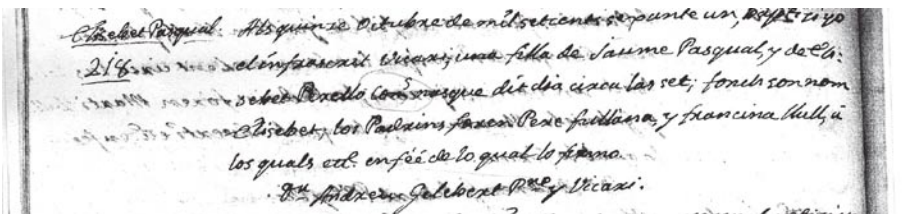 Elisebet Pasqual. Als quinze Octubre de mil setcents sexpante un, Bapt. ti yo
218 el infrascrit Vicari, una filla de Jaume Pasqual, y de Eli:
sebet Perello Con. nasque dit dia circa las set; fonch son nom
Elisebet, los Padrins foren Pere fullana, y francina Llull, a
los quals ett. en féé de lo qual lo firmo.
Andreu Gelebert Pre. y Vicari.